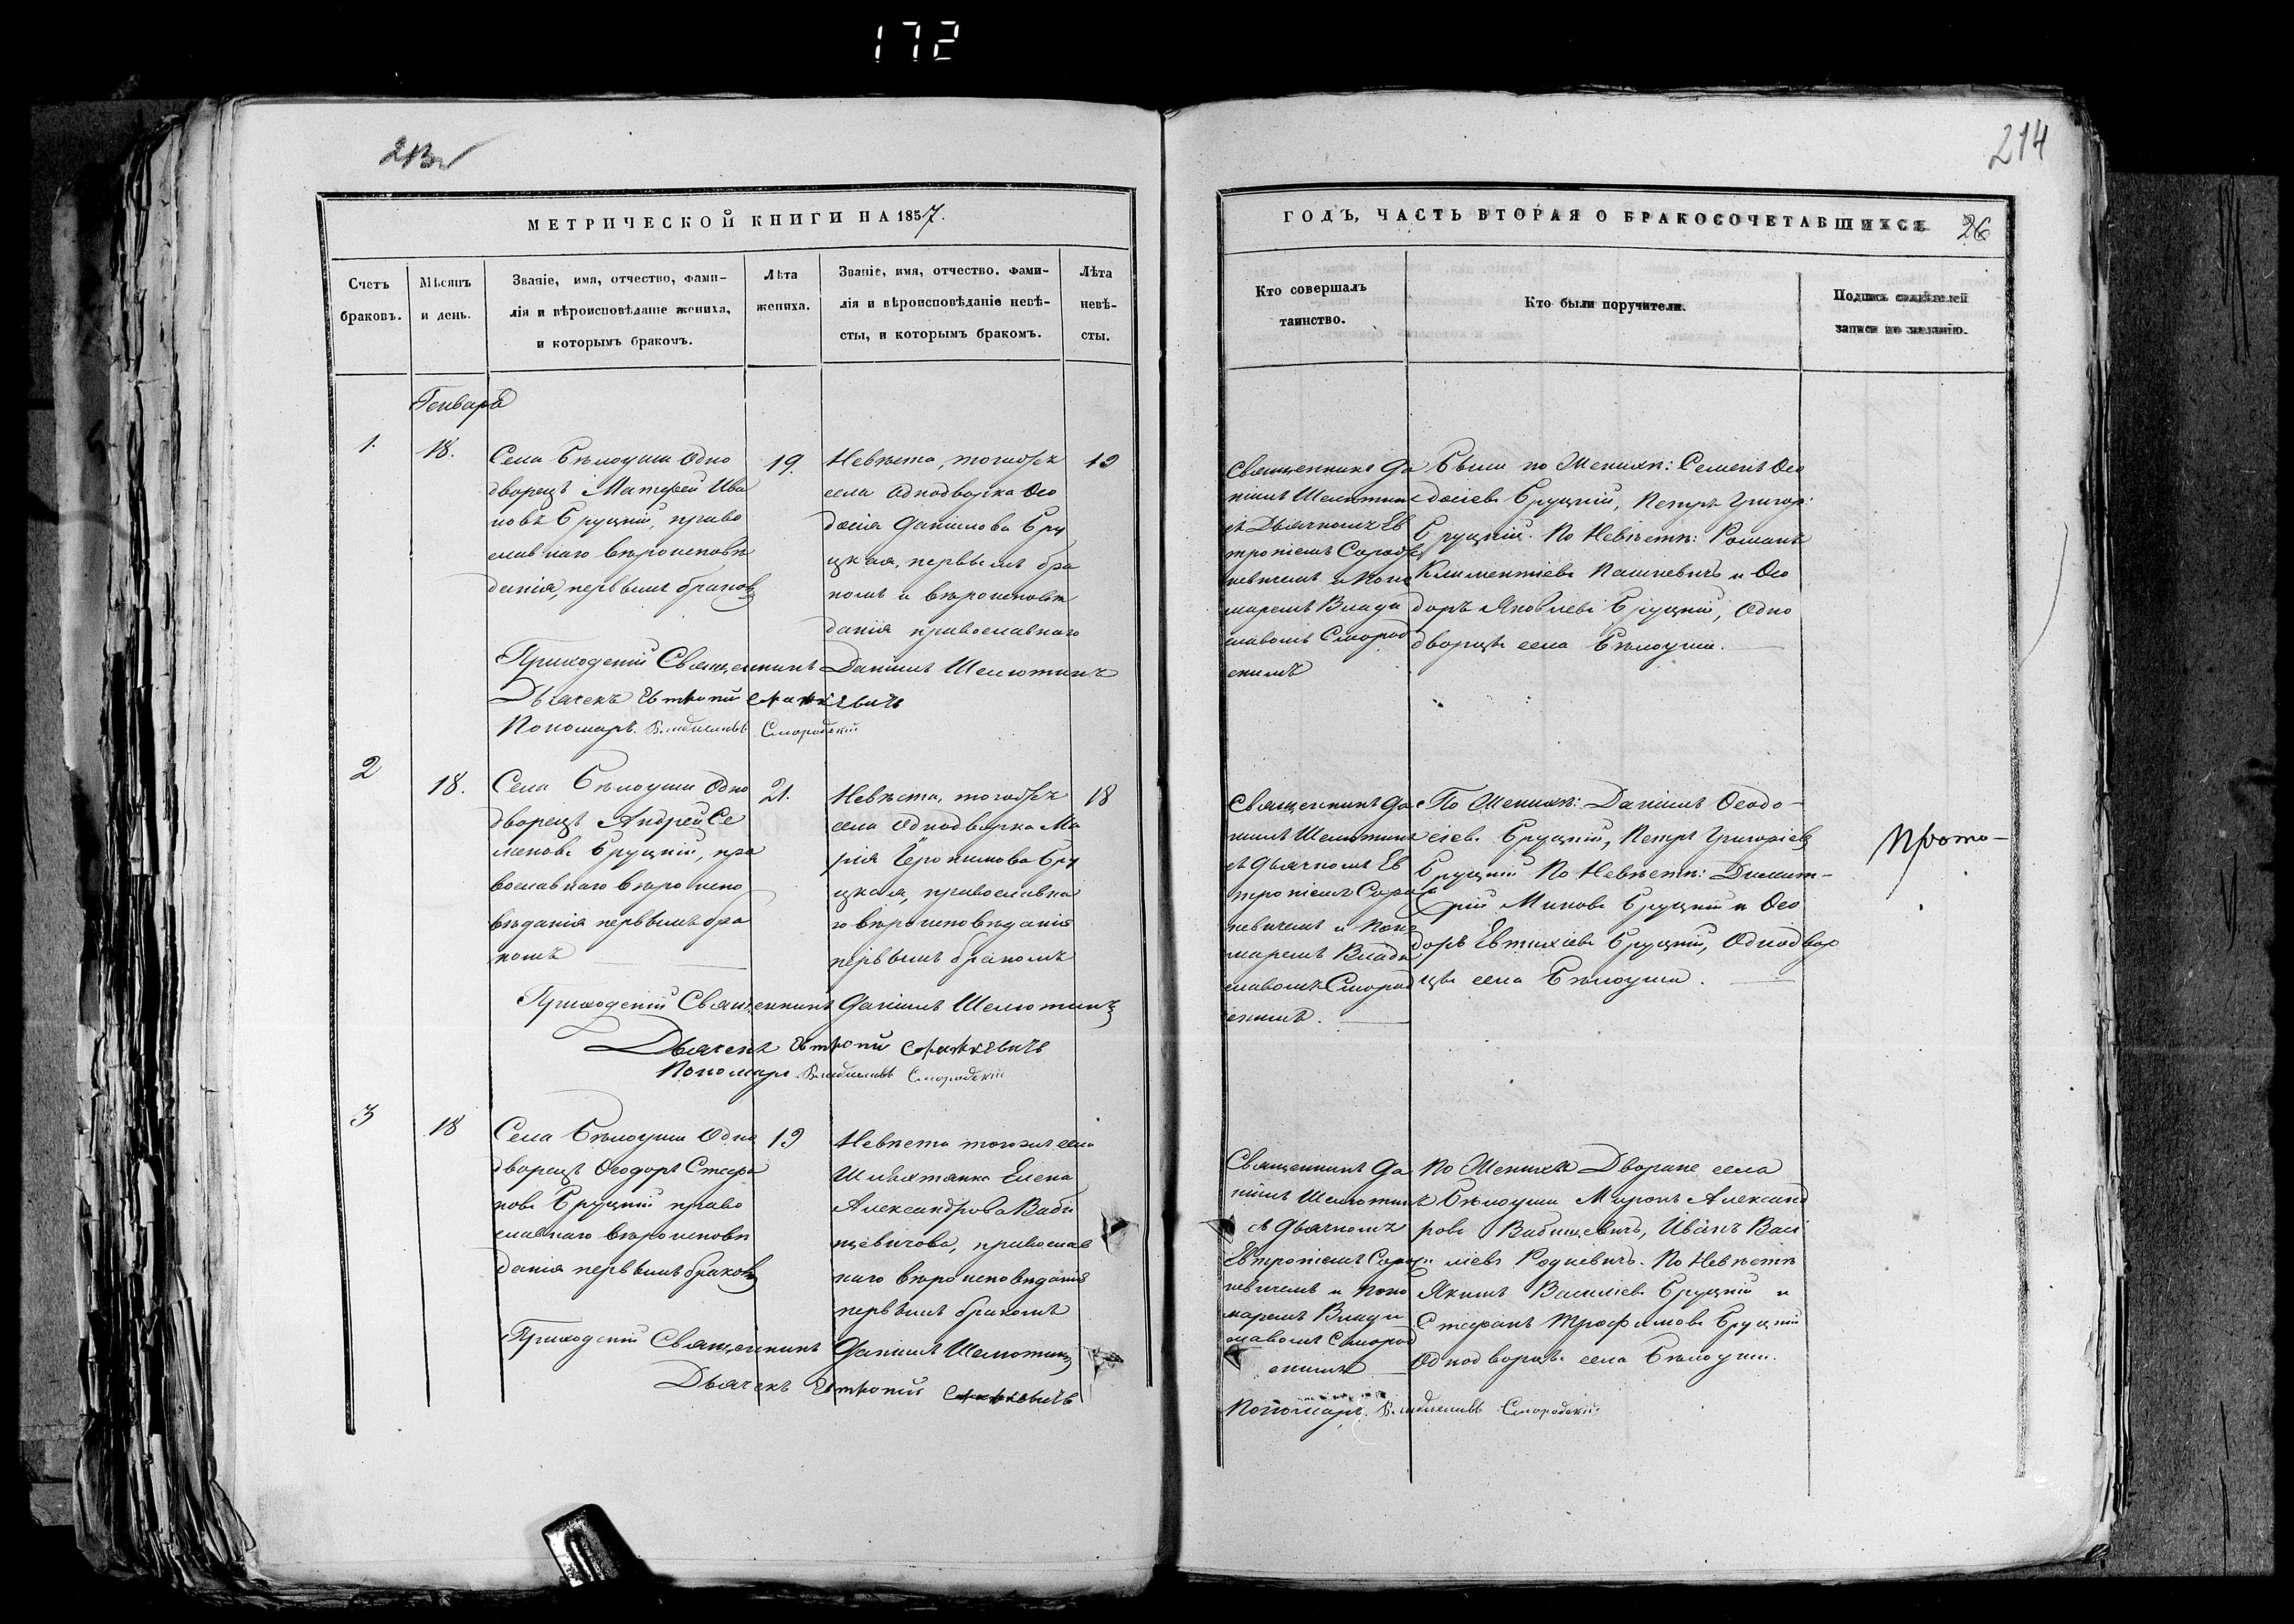 172
213v
МЕТРИЧЕСКОЙ КНИГИ НА 1857.
Счетъ
браковъ.
Мѣсяцъ
и день.
Званіе, имя, отчество, фами-
лія и вѣроисповѣданіе жениха,
и которымъ бракомъ.
Лѣта
жениха.
Званіе, имя, отчество. фами-
лія и вѣроисповѣданіе невѣ-
сты, и которымъ бракомъ.
Лѣта
невѣ-
сты.
Генваря
1.
18.
Села Бѣлоуши Одно
дворецъ Матфей Ива
новъ Бруцкій, право
славнаго вѣроисповѣ
данія, первымъ бракомъ
19.
Невѣста, тогожъ
села Однодворка Ѳео
досія Даніилова Бру
цкая, первымъ бра
комъ и вѣроисповѣ
данія православнаго
19
Приходскій Священникъ Даніилъ Шеметиллъ
Дьячекъ Евтропій
Пономарь Владиславъ Смородскій
2
18.
Села Бѣлоуши Одно
дворецъ Андрей Се
меновъ Бруцкій, пра
вославнаго вѣроиспо
вѣданія первымъ бра
комъ
21.
Невѣста, тогожъ
села Однодворка Ма
рія Іеронимова Бру
цкая, православна
го вѣроисповѣданія
первымъ бракомъ
18
Приходскій Священникъ Даніилъ
Дьячекъ Евтропій
Пономарь Владиславъ Смородскій
3
18
Села Бѣлоуши Одно
дворецъ Ѳеодоръ Стефа
новъ Бруцкій право
славнаго вѣроисповѣ
данія первымъ бракомъ
19
Невѣста тогожъ села
Шляхтянка Елена
Александрова Ваби
щевичова, православ
наго вѣроисповѣданія
первымъ бракомъ
Приходскій Священникъ Даніилъ
Дьячекъ Евтропій
214
ГОДЪ, ЧАСТЬ ВТОРАЯ О БРАКОСОЧЕТАВШИХСЯ 26
Кто совершалъ
таинство.
Кто были поручители.
Подпись свидѣтелей
записи по желанію.
Священникъ Да
ніилъ
съ Дьячкомъ Ев
тропіемъ
и Поно
маремъ Влади
славомъ Смород
скимъ
Были по Женихѣ: Семенъ Ѳео
досіевъ Бруцкій, Петръ Григор:
Бруцкій. По Невѣстѣ: Романъ
Климентіевъ Пашкевичъ и Ѳео
доръ Яковлевъ Бруцкій, Одно
дворцы села Бѣлоуши.
Священникъ Да
ніилъ
съ Дьячкомъ Ев
тропіемъ
и Поно
маремъ Влади
славомъ Смород
скимъ.
По Женихѣ: Даніилъ Ѳеодо-
сіевъ Бруцкій, Петръ Григоріевъ
Бруцкій По Невѣстѣ: Димит-
рій Миновъ Бруцкій и Ѳео
доръ Евтихіевъ Бруцкій, Однодвор
цы села Бѣлоуши.
Священникъ Да
ніилъ
съ Дьячкомъ
Евтропіемъ
и Поно
маремъ Влади
славомъ Смород
скимъ
По Женихѣ Дворяне села
Бѣлоуши Миронъ Александ
ровъ Вабищевичъ, Иванъ Васи
ліевъ Родкевичъ. По Невѣстѣ
Якимъ Василіевъ Бруцкій и
Стефанъ Трофимовъ Бруцкій
Однодворцы села Бѣлоуши.
Пономарь Владиславъ Смородскій